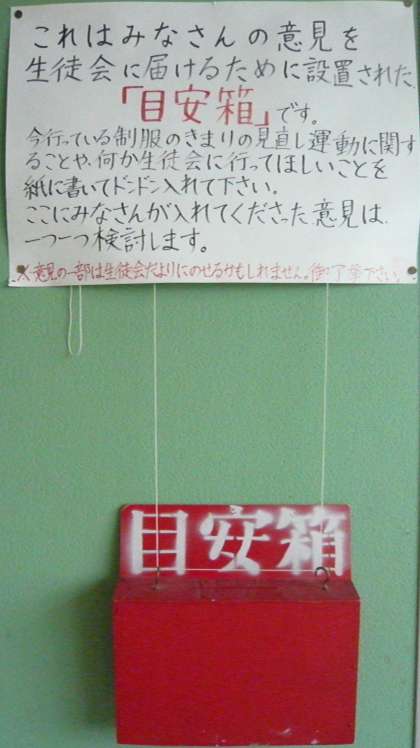 これはみなさんの意見を
生徒会に届けるために設置された、
「目安箱」です。
今行っている制服のきまりの見直し運動に関す
ることや、何か生徒会に行ってほしいことを
紙に書いてドンドン入れて下さい。
ここにみなさんが入れてくださった意見は、
一つ一つ検討します。
※意見の一部は生徒会だよりにのせるかもしれません。御了承下さい。
目安箱